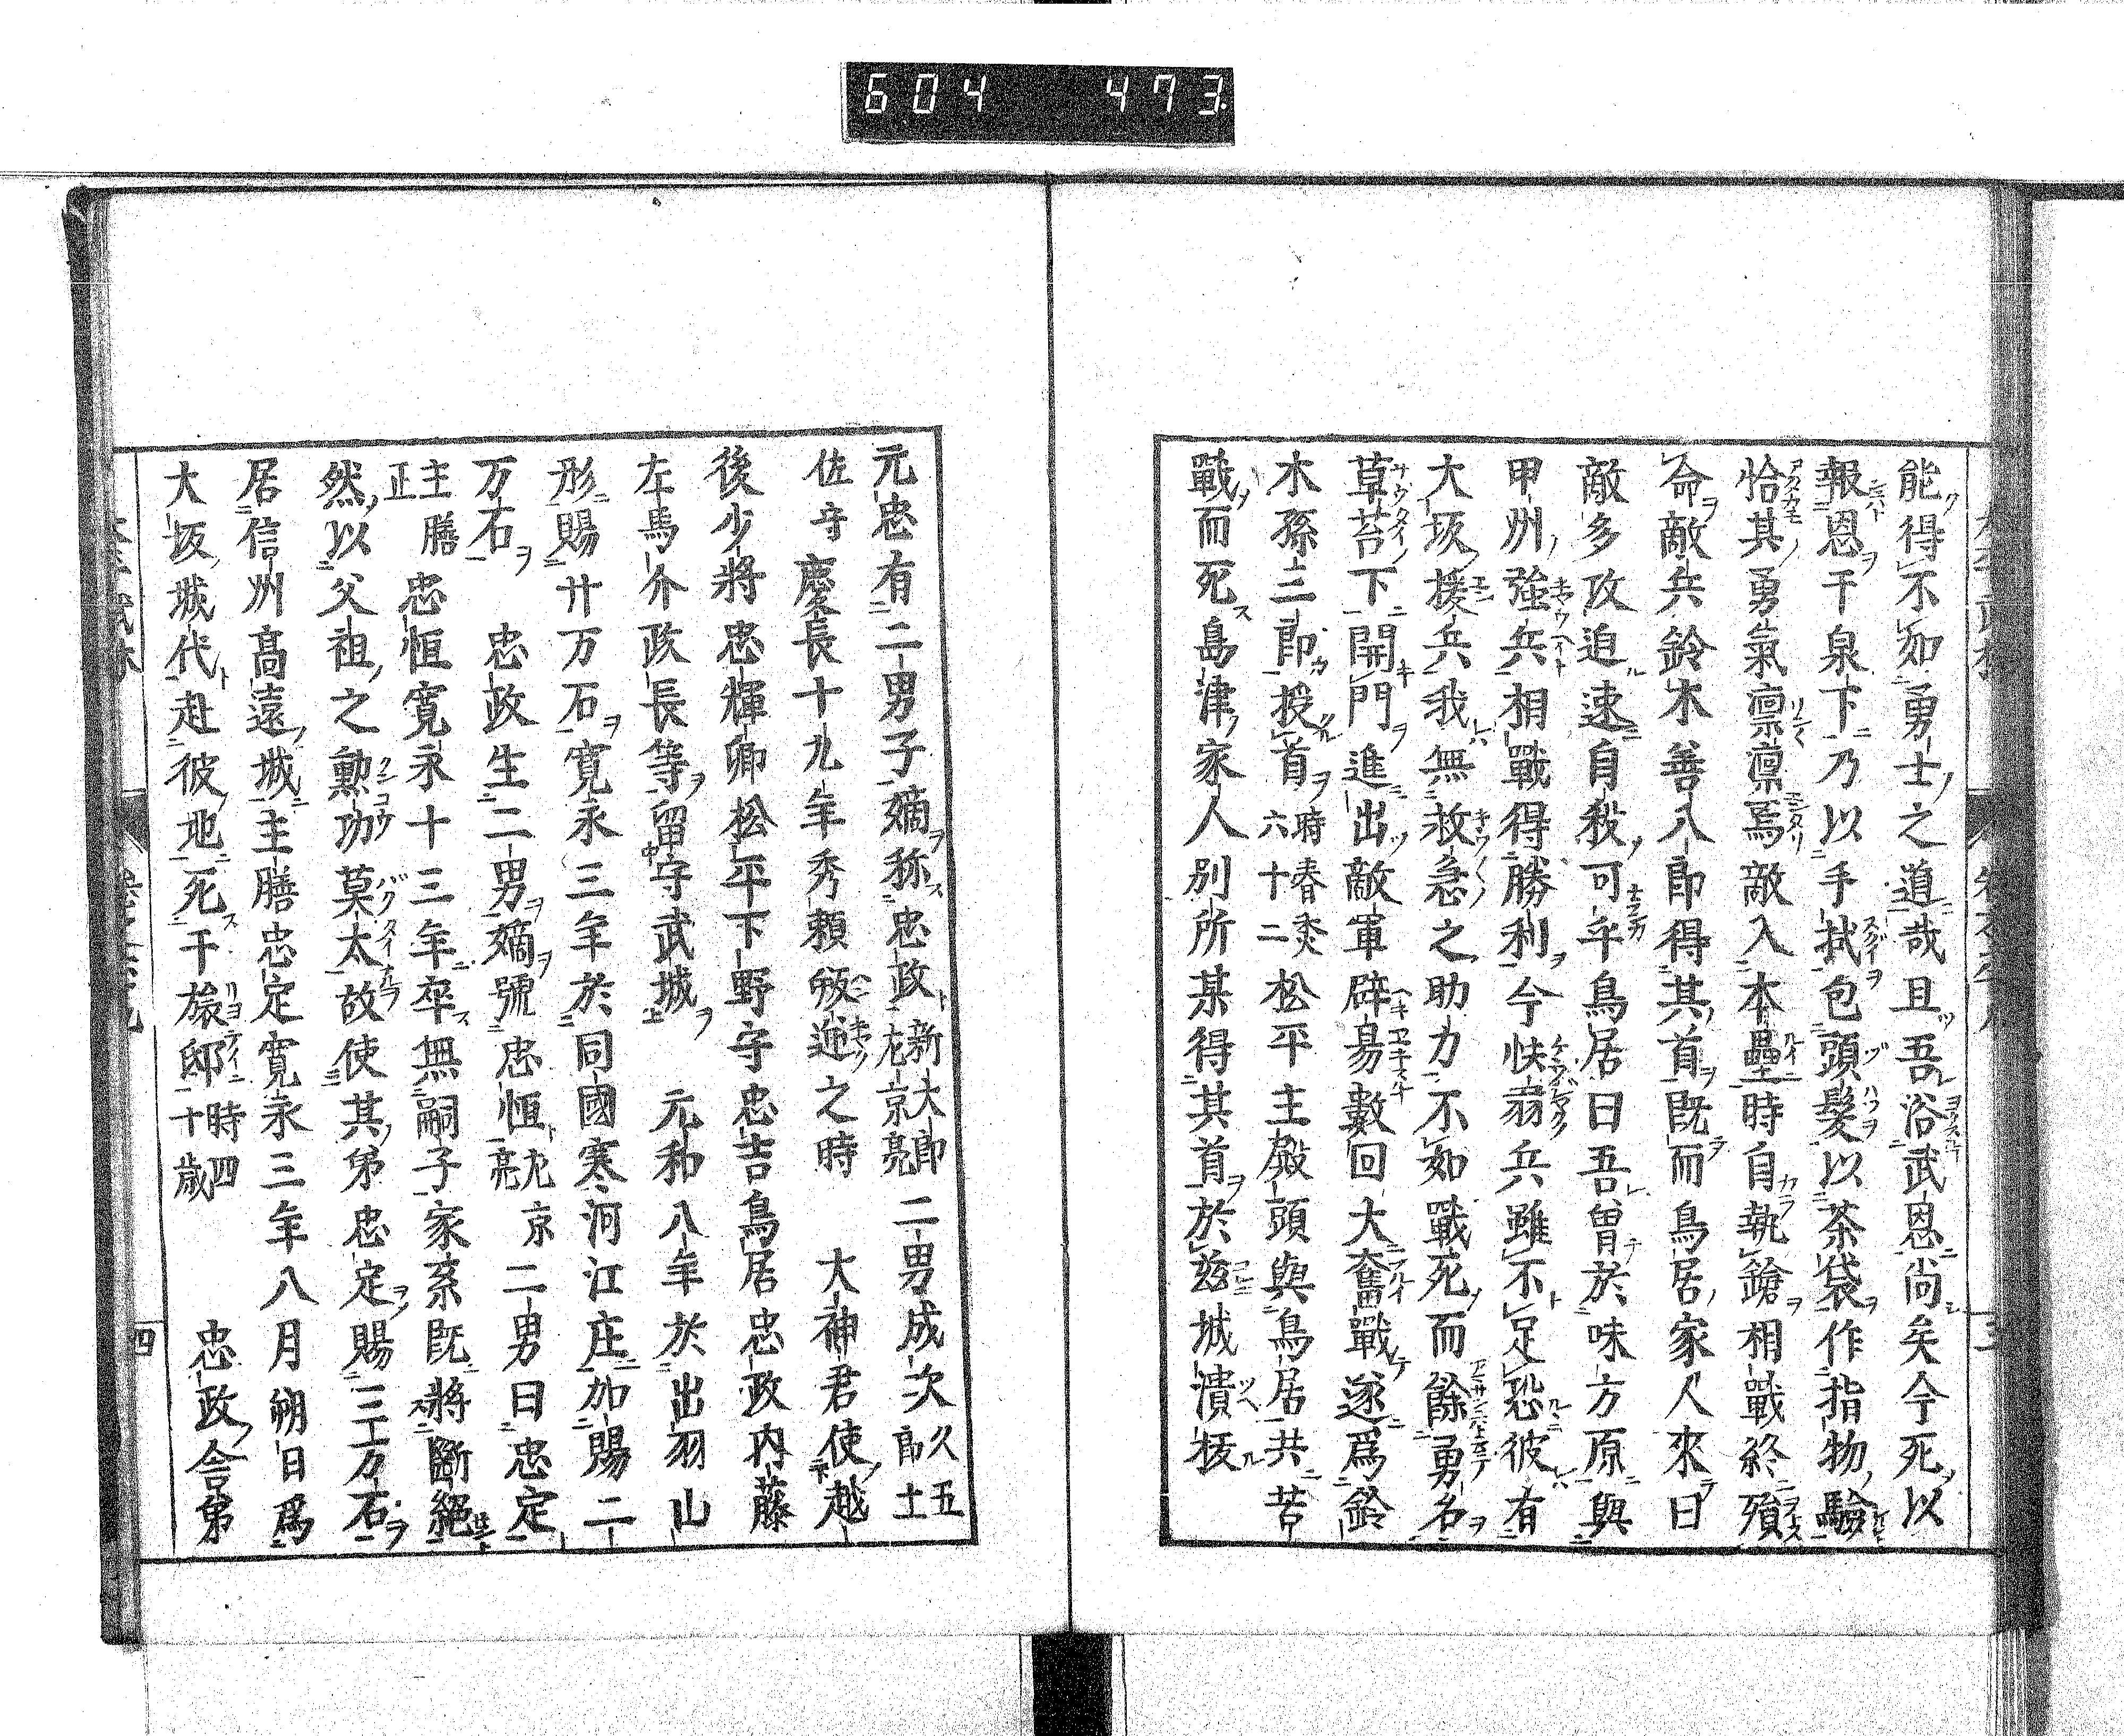 604 473
能得不如勇士之道哉且吾浴武恩尚矣今死以
報恩于泉下乃以手拭包頭髮以茶袋作指物驗
恰其勇氣凛凛焉敵入本壘時自執鎗相戰終殞
命敵兵鈴木善八郎得其首既而鳥居家人來曰
敵多攻迫速自殺可乎鳥居曰吾曾於味方原與
甲州強兵相戰得勝利今怏弱兵雖不足恐彼有
大坂援兵我無救急之助力不如戰死而餘勇名
草苔下開門進出敵軍辟易數回大奮戰遂爲鈴
木孫三郎授首時春秋六十二松平主殿頭與鳥居共苦
戰而死島津家人別所某得其首於茲城潰拔
元忠有二男子嫡称忠政新太郎左京亮二男成次久五郎土
佐守慶長十九年秀頼叛逆之時 大神君使越
後少將忠輝卿松平下野守忠吉鳥居忠政内藤
左馬介政長等留守武城 元和八年於出羽山
形賜廿万石寛永三年於同國寒河江庄加賜二
万石 忠政生二男嫡號忠恒左京亮二男曰忠定
主膳正 忠恒寛永十三年卒無嗣子家系既將斷絕
然以父祖之勲功莫太故使其弟忠定賜三万石
居信州髙遠城主膳忠定寛永三年八月朔日爲
大坂城代赴彼地死于旅邸時四十歳 忠政舎弟
四